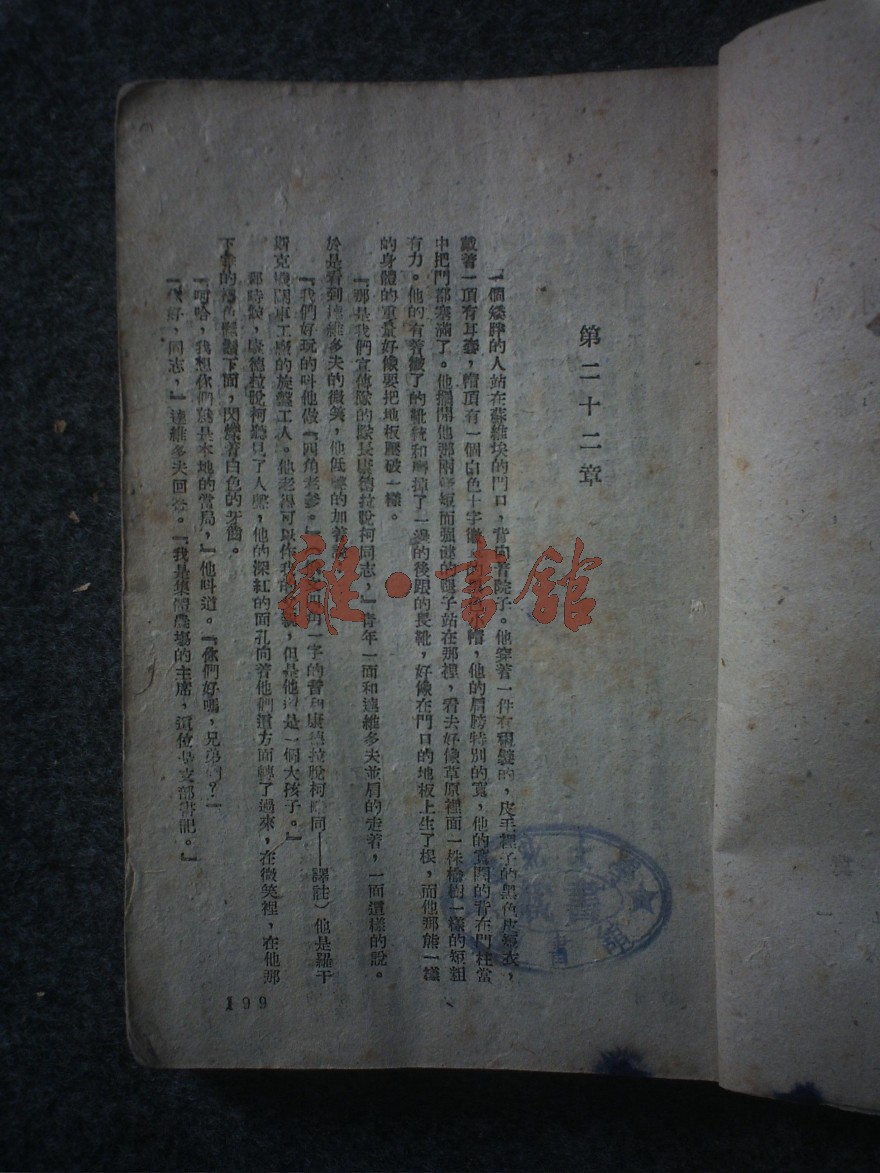 第二十二章
一個矮胖的人站在蘇維埃的門口，背向着院子。他穿着一件有褶襞的，皮毛裡子的黑色皮短衣，
戴着一頂有耳套，帽頂有一個白色十字徽 帽，他的肩膀特別的寬，他的寬闊的背在門柱當
中把門都塞滿了。他擺開他那兩 短而强健的腿子站在那裡，看去好像草原裡面一株檜樹一樣的短粗
有力。他的有着皺了的靴統和 掉了一邊的後跟的長靴，好像在門口的地板上生了根，而他那熊一樣
的身體的重量好像要把地板壓破一樣。
『那是我們宣傳隊的隊長康德拉脫柯同志，』青年一面和達維多夫並肩的走着，一面這樣的說。
於是看到達維多夫的微笑，他低聲的加着
『我們好玩的叫他做『四角老爹。』 四角一字的音和康德拉脫柯 同——譯註）他是羅干
斯克機關車工廠的旋盤工人。他老 可以作我的 親，但是他 是一個大孩子。』
那時候，康德拉脫柯聽見了人聲，他的深紅的面孔向着他們這方面轉了過來，在微笑裡，在他那
下 的褐色 下面，閃爍着白色的牙齒。
『呵哈，我想你們就是本地的當局，』他叫道。『你們好嗎，兄弟們？』
『你好，同志，』達維多夫回答。『我是集體農場的主席，這位是支部書記。』
199
雜·書館